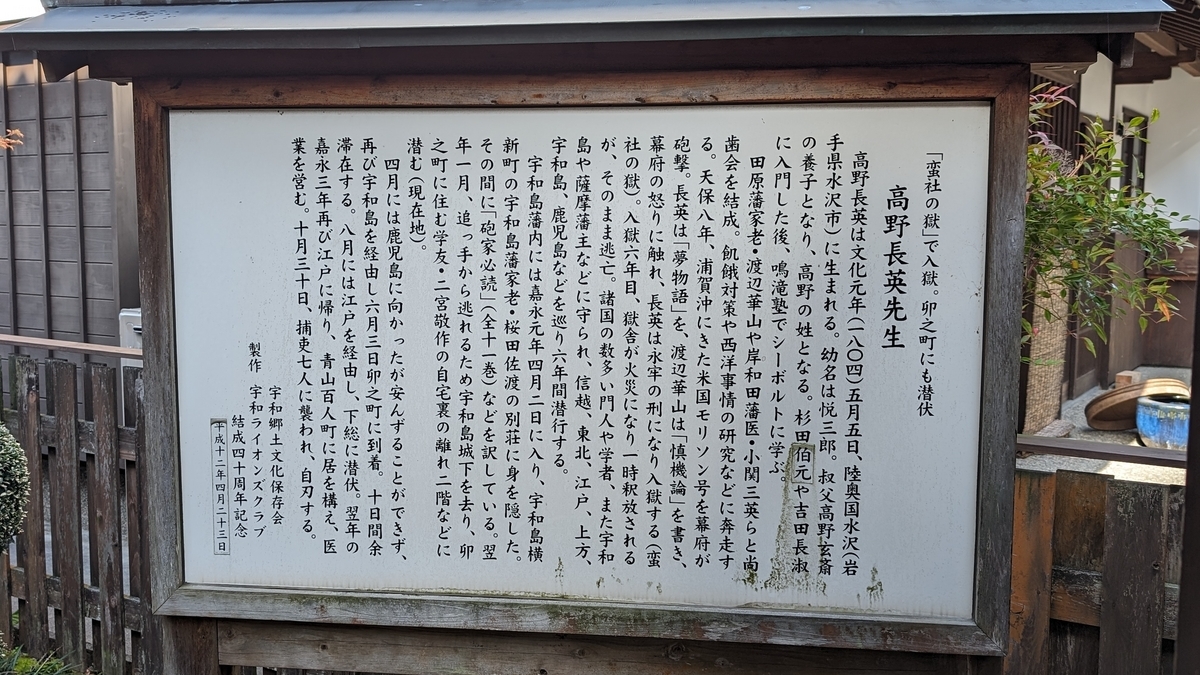 「蛮社の獄」で入獄。卯之町にも潜伏
高野長英先生
高野長英は文化元年(一八〇四)五月五日、陸奥国水沢(岩
手県水沢市)に生まれる。幼名は悦三郎。叔父高野玄斎
の養子となり、高野の姓となる。杉田伯元や吉田長淑
に入門した後、鳴滝塾でシーボルトに学ぶ。
田原藩家老・渡辺華山や岸和田藩医・小関三英らと尚
歯会を結成。飢餓対策や西洋事情の研究などに奔走す
る。天保八年、浦賀沖にきた米国モリソン号を幕府が
砲撃。長英は「夢物語」を、渡辺華山は「慎機論」を書き、
幕府の怒りに触れ、長英は永牢の刑になり入獄する(蛮
社の獄)。入獄六年目、獄舎が火災になり一時釈放される
が、そのまま逃亡。諸国の数多い門人や学者、また宇和
島や薩摩藩主などに守られ、信越、東北、江戸、上方、
宇和島、鹿児島などを巡り六年間潜行する。
宇和島藩内には嘉永元年四月二日に入り、宇和島横
新町の宇和島藩家老・桜田佐渡の別荘に身を隠した。
その間に「砲家必読」(全十一巻)などを訳している。翌
年一月、追っ手から逃れるため宇和島城下を去り、卯
之町に住む学友・二宮敬作の自宅裏の離れ二階などに
潜む(現在地)。
四月には鹿児島に向かったが安んずることができず、
再び宇和島を経由し六月三日卯之町に到着。十日間余
滞在する。八月には江戸を経由し、下総に潜伏。翌年の
嘉永三年再び江戸に帰り、青山百人町に居を構え、医
業を営む。十月三十日、捕吏七人に襲われ、自刃する。
製作 宇和郷土文化保存会
宇和ライオンズクラブ
結成四十周年記念
平成十二年四月二十三日